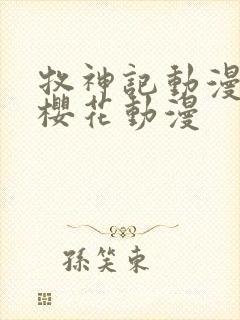 牧神記動漫
櫻花動漫
孫笑東